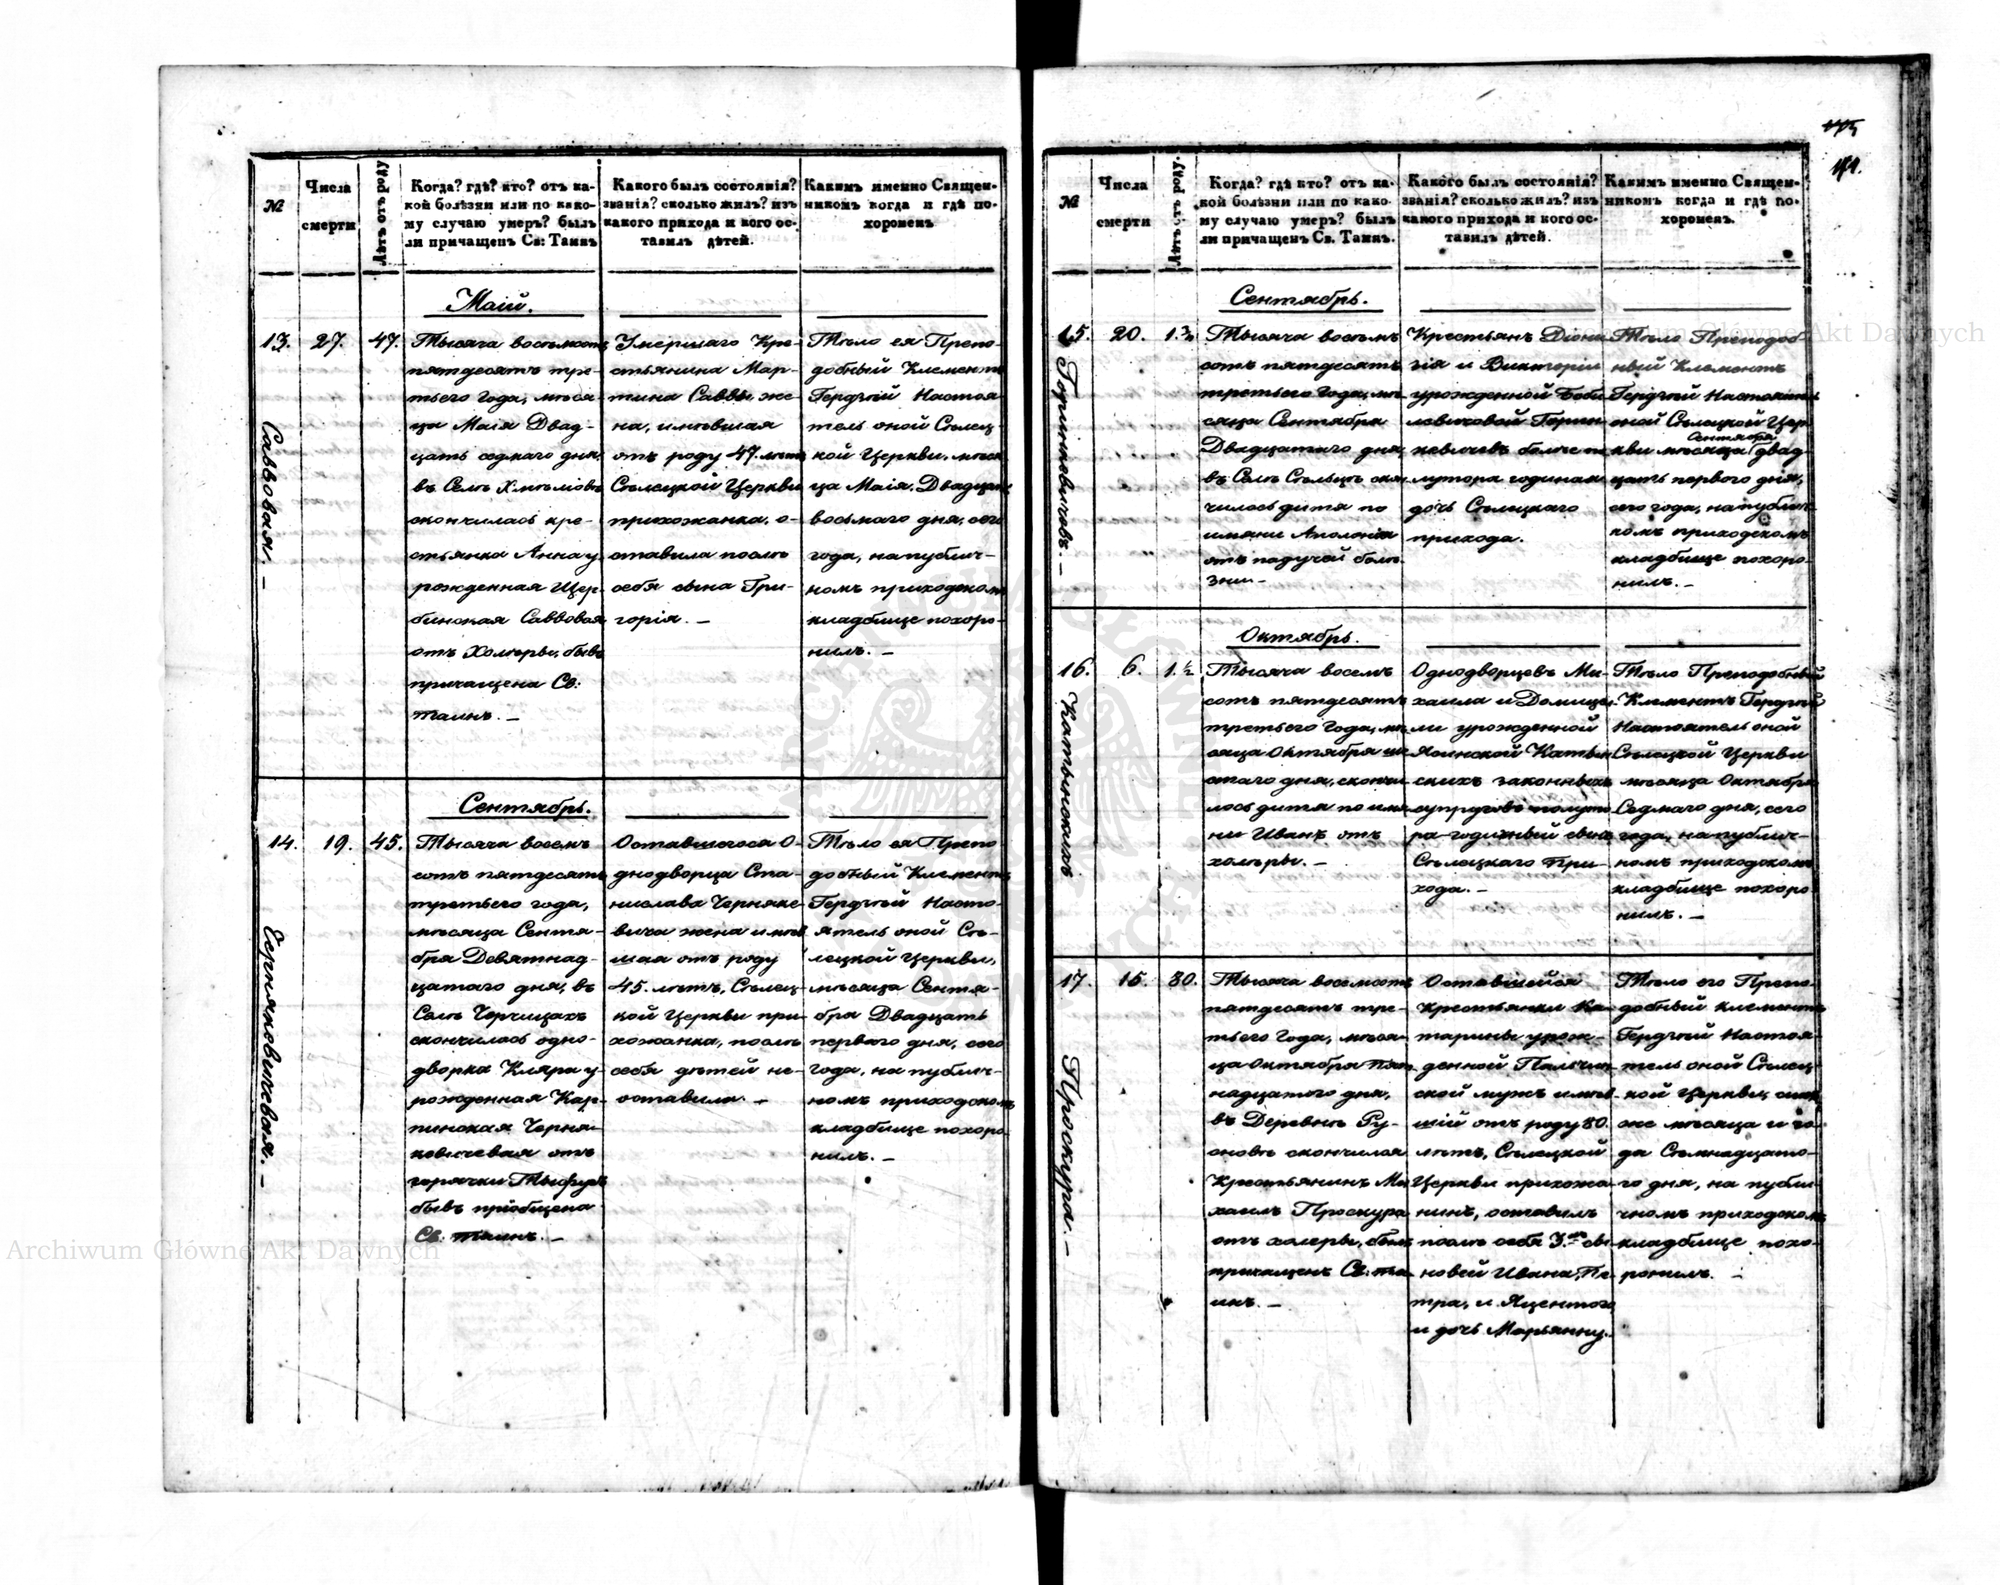 №
Числа
смерти
Лѣтъ отъ роду
Когда? гдѣ? кто? отъ ка-
кой болѣзни или по како-
му случаю умеръ? былъ
ли причащенъ Св: Таинъ
Какого былъ состоянія?
званія? сколько жилъ? изъ
какого прихода и кого ос-
тавилъ дѣтей.
Какимъ именно Священ-
никомъ когда и гдѣ по-
хороненъ
Маій.
13.
27.
47.
Саввовая. —
Тысяча восемьсотъ
пятдесятъ тре-
тьего года, мѣся
ца Маія Двад-
цать седмаго дня,
въ Селѣ
скончилась кре-
стьянка Анна у
рожденная Щер-
бинская Саввовая
отъ Холеры, бывъ
причащена Св:
таинъ. —
Умершаго Кре-
стьянина Мар-
тина Саввы же-
на, имѣвшая
отъ роду 47. лѣтъ
Сѣлецкой Церкви
прихожанка, о-
ставила послѣ
себя сына Гри-
горія. —
Тѣло ея Препо-
добный Клементъ
Гердчій Настоя
тель оной Сѣлец-
кой Церкви, мѣся
ца Маія, Двадцать
восьмаго дня, сего
года, на публич-
номъ приходском
кладбище похоро-
нилъ. —
Сентябрь.
14.
19.
45.
Черняковичевая. —
Тысяча восемъ
сотъ пятдесятъ
третьего года,
мѣсяца Сентя-
бря Девятнад-
цатаго дня, въ
Селѣ Черчицахъ
скончилась одно-
дворка Кляра у
рожденная Кар-
пинская Черня-
ковичевая отъ
горячки Тыфусъ
бывъ пріобщена
Св. таинъ. —
Оставшегося О-
днодворца Ста-
нислава Черняко-
вича жена имѣв
шая отъ роду
45. лѣтъ, Сѣлец-
кой Церкви при-
хожанка, послѣ
себя дѣтей не-
оставила. —
Тѣло ея Препо
добный Клементъ
Гердчій Насто-
ятель оной Сѣ-
лецкой Церкви,
мѣсяца Сентя-
бря Двадцать
первого дня, сего
года, на публич-
номъ приходском
кладбище похоро-
нилъ. —
175
№
Числа
смерти
Лѣтъ отъ роду.
Когда? гдѣ кто? отъ ка-
кой болѣзни или по како-
му случаю умеръ? былъ
ли причащенъ Св. Таинъ.
Какого былъ состоянія?
званія? сколько жилъ? изъ
какого прихода и кого ос-
тавилъ дѣтей.
Какимъ именно Священ-
никомъ когда и гдѣ по-
хороненъ.
Сентябрь.
15.
20.
Гориневичовъ. —
Тысяча восемъ
сотъ пятдесятъ
третьего года, мѣ
сяца Сентября
Двадцатаго дня
въ Селѣ Сѣльцѣ скон
чилось дитя по
имяни Аполонія
отъ падучей болѣ
зни —
Крестьянъ Діони
зія и Викторіи
урожденной Боби
левичовой Горин
полутора годичная
дочь Сѣлецкаго
прихода.
Тѣло Преподоб-
ный Клементъ
Гердчій Настоятель
оной Сѣлецкой Цер
Сентября
кви мѣсяца двад-
цать первого дня,
сего года, на публич
номъ приходскомъ
кладбище похоро-
нилъ. —
Октябрь.
16.
6.
1½
Катынскихъ
Тысяча восемъ
сотъ пятдесятъ
третьего года, мѣ
сяца Октября ше
стаго дня, скончи
лось дитя по имя
ни Иванъ отъ
холеры. —
Однодворцевъ Ми-
хаила и Домице-
ли урожденной
Ясинской Катын
скихъ законныхъ
супруговъ полуто
ра-годичный сынъ
Сѣлецкаго При-
хода. —
Тѣло Преподобный
Клементъ Гердчій
Настоятель оной
Сѣлецкой Церкви
мѣсяца Октября
Седмаго дня, сего
года, на публич-
номъ приходскомъ
кладбище похоро
нилъ. —
17.
15.
80.
Проскура. —
Тысяча восемьсотъ
пятдесятъ тре-
тьего года, мѣся-
ца Октября Пят
надцатого дня,
въ Деревнѣ Ру-
сновѣ скончился
Крестьянинъ Ми
хаилъ Проскура
отъ холеры, бывъ
причащенъ Св: та-
инъ. —
Оставшейся
Крестьянки Ка-
тарины урож-
денной Пальчин
ской мужъ имѣв-
шій отъ роду 80.
лѣтъ, Сѣлецкой
Церкви прихожа-
нинъ, оставилъ
послѣ себя 3.хъ сы-
новей Ивана, Пе-
тра, и Яцентого
и дочь Марьянну.
Тѣло его Препо-
добный Клементъ
Гердчій Настоя-
тель оной Сѣлец-
кой Церкви,
же мѣсяца и го-
да Сѣмнадцато-
го дня, на публи-
чномъ приходском
кладбище похо-
ронилъ. —
Archiwum Główne Akt Dawnych
Archiwum Główne Akt Dawnych